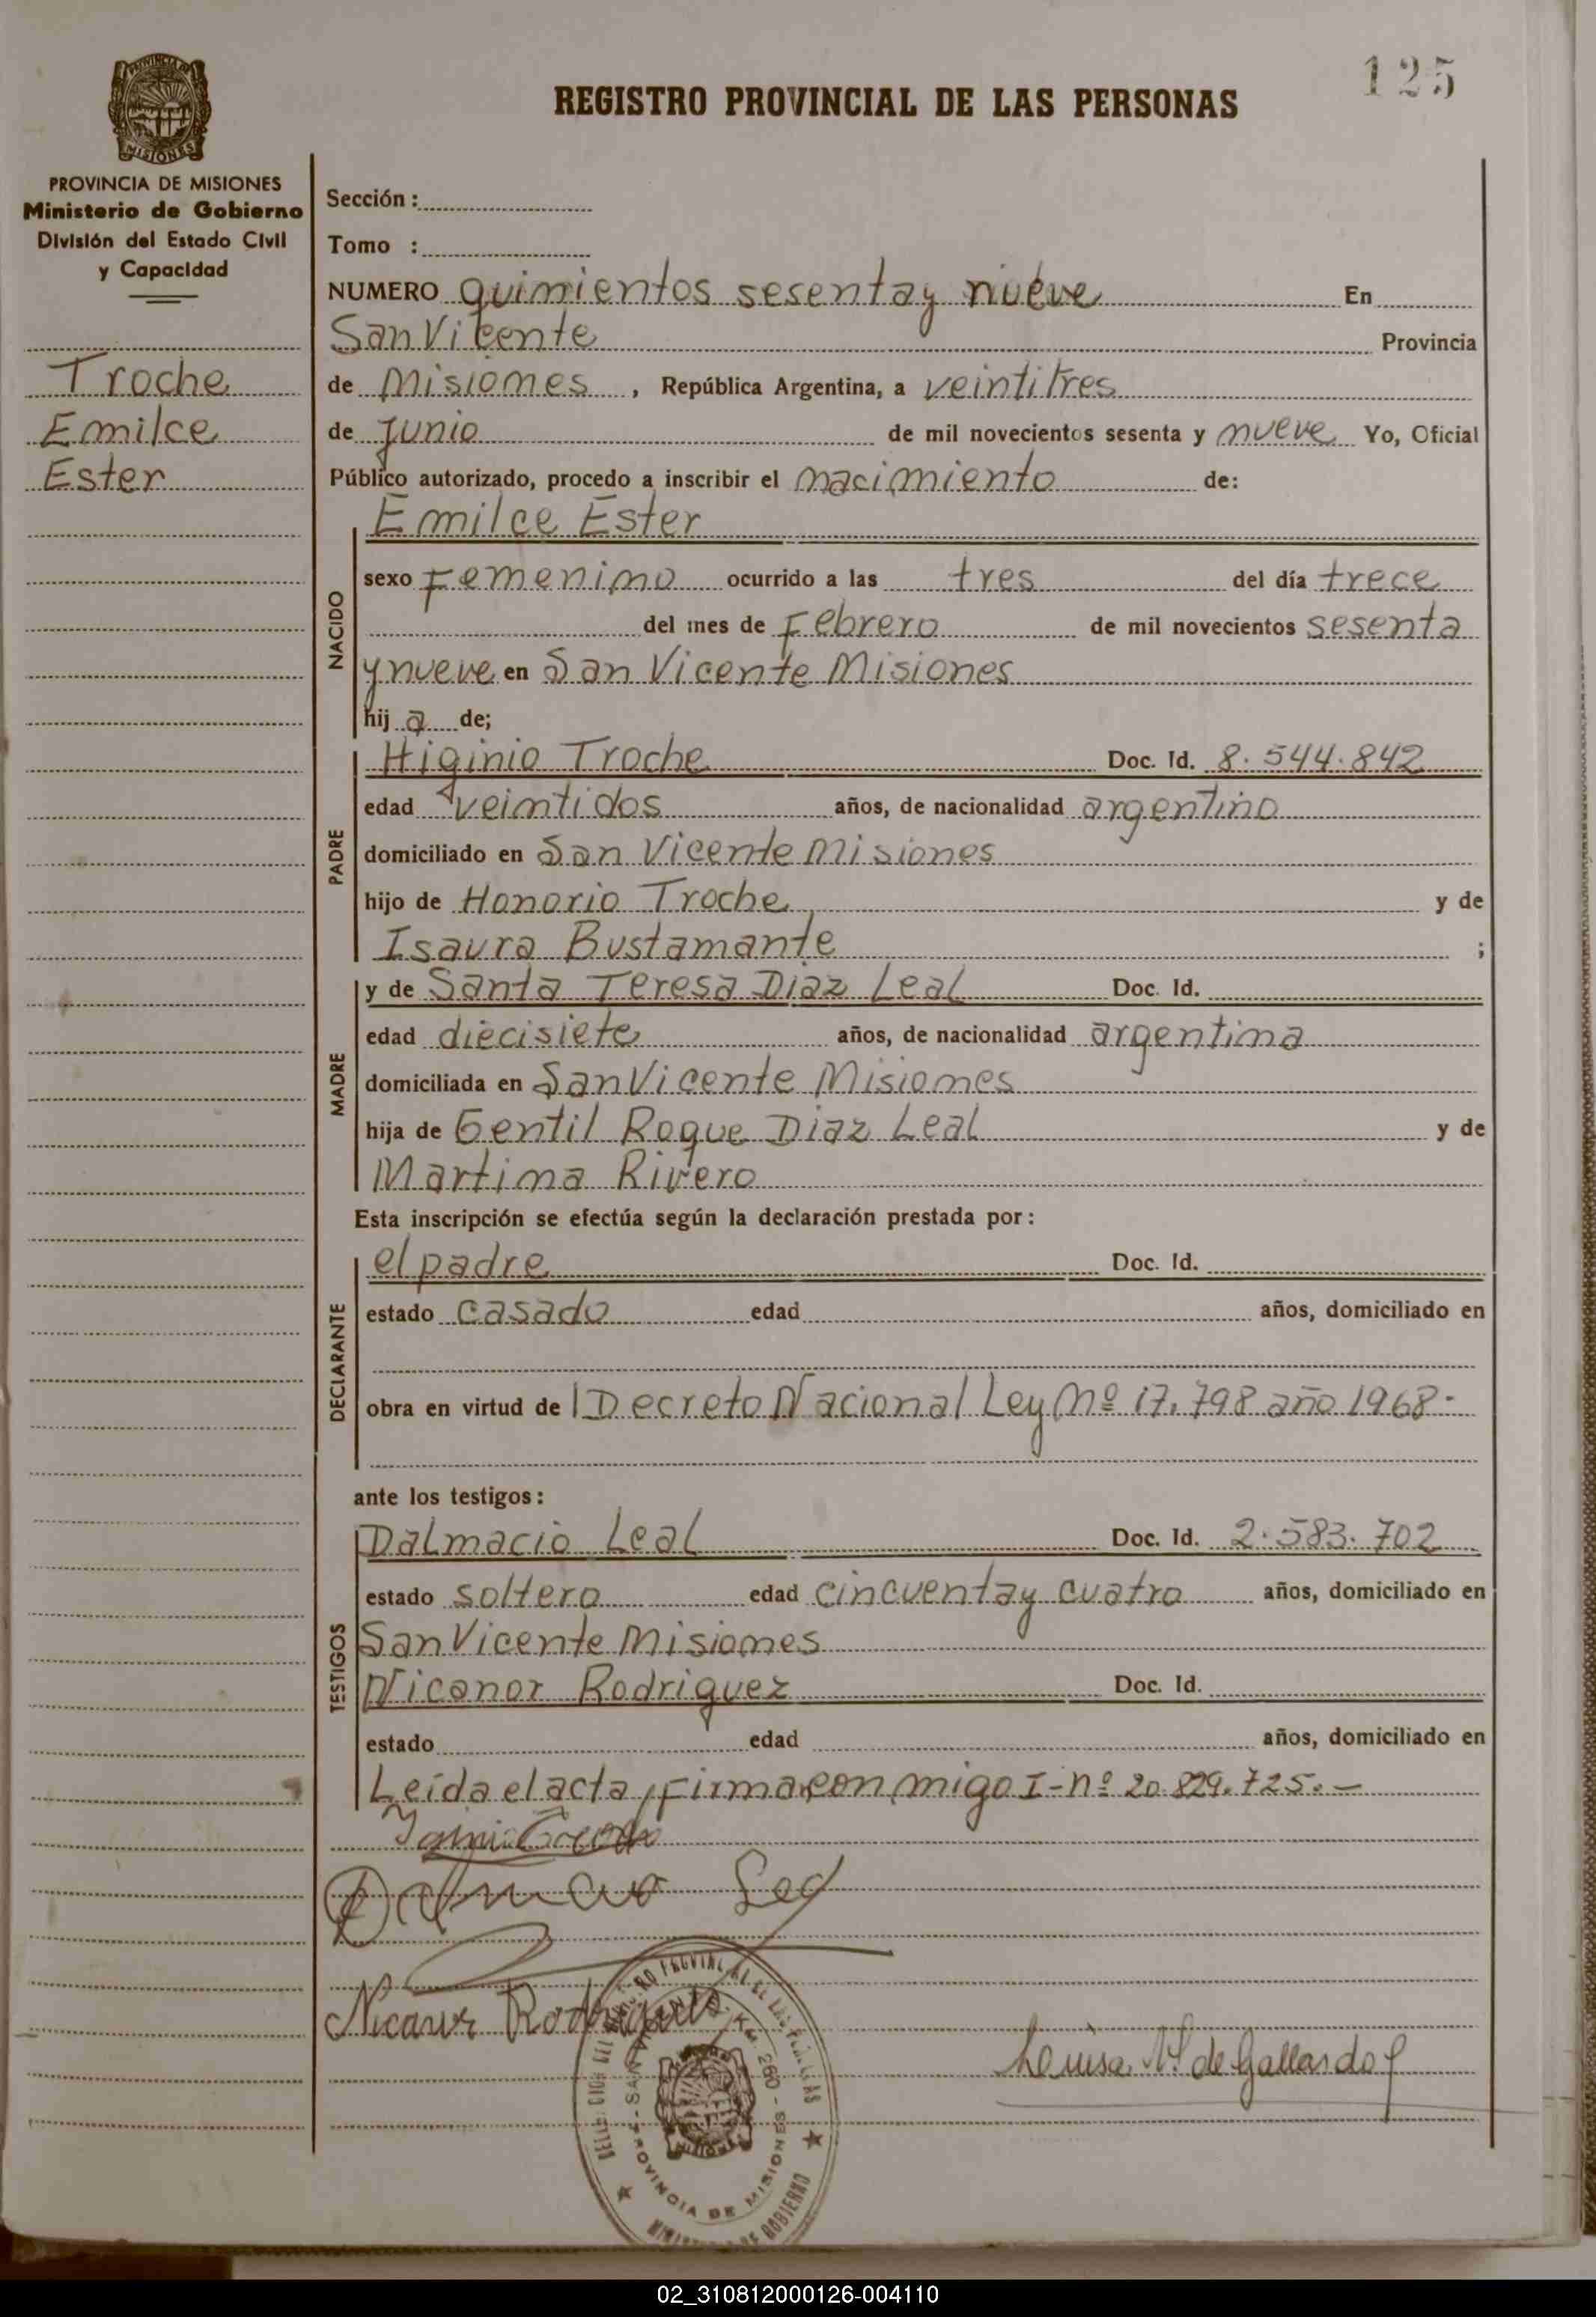 125
REGISTRO PROVINCIAL DE LAS PERSONAS
PROVINCIA DE MISIONES
MISIONES
PROVINCIA DE MISIONES
Ministerio de Gobierno
División del Estado Civil
y Capacidad
Troche
Emilce
Ester
Sección :
Tomo :
NUMERO quinientos sesenta y nueve En
San Vicente Provincia
de Misiones , República Argentina, a veintitres
de Junio de mil novecientos sesenta y nueve Yo, Oficial
Público autorizado, procedo a inscribir el nacimiento de:
NACIDO
Emilce Ester
sexo Femenino ocurrido a las tres del día trece
del mes de Febrero de mil novecientos sesenta
y nueve en San Vicente Misiones
hij a de;
PADRE
Higinio Troche Doc. Id. 8.544.842
edad veintidos años, de nacionalidad argentino
domiciliado en San Vicente Misiones
hijo de Honorio Troche y de
Isaura Bustamante ;
MADRE
y de Santa Teresa Diaz Leal Doc. Id.
edad diecisiete años, de nacionalidad argentina
domiciliada en San Vicente Misiones
hija de Gentil Roque Diaz Leal y de
Martina Rivero
Esta inscripción se efectúa según la declaración prestada por:
DECLARANTE
el padre Doc. Id.
estado casado edad años, domiciliado en
obra en virtud de l Decreto Nacional Ley Nº 17.798 año 1968-
ante los testigos:
TESTIGOS
Dalmacio Leal Doc. Id. 2.583.702
estado soltero edad cincuenta y cuatro años, domiciliado en
San Vicente Misiones
Nicanor Rodriguez Doc. Id.
estado edad años, domiciliado en
Leída el acta, firma con migo I-nº 20.829.725.-
Nicanor Rodriguez
Louisa de Gallardo
PROVINCIA DE MISIONES
02_310812000126-004110